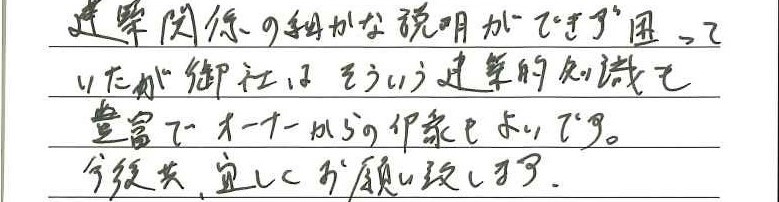 建築関係の細かな説明ができず困って
いたが御社はそういう建築的知識も
豊富でオーナーからの印象もよいです。
今後共、宜しくお願い致します.